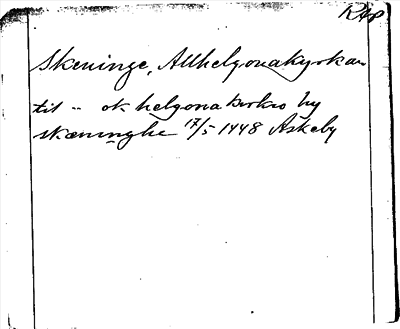 RAP
Skeninge, Allhelgonakyrkan
til .. ok helgona kirkio hy
skæninghe 17/5 1448 Askeby